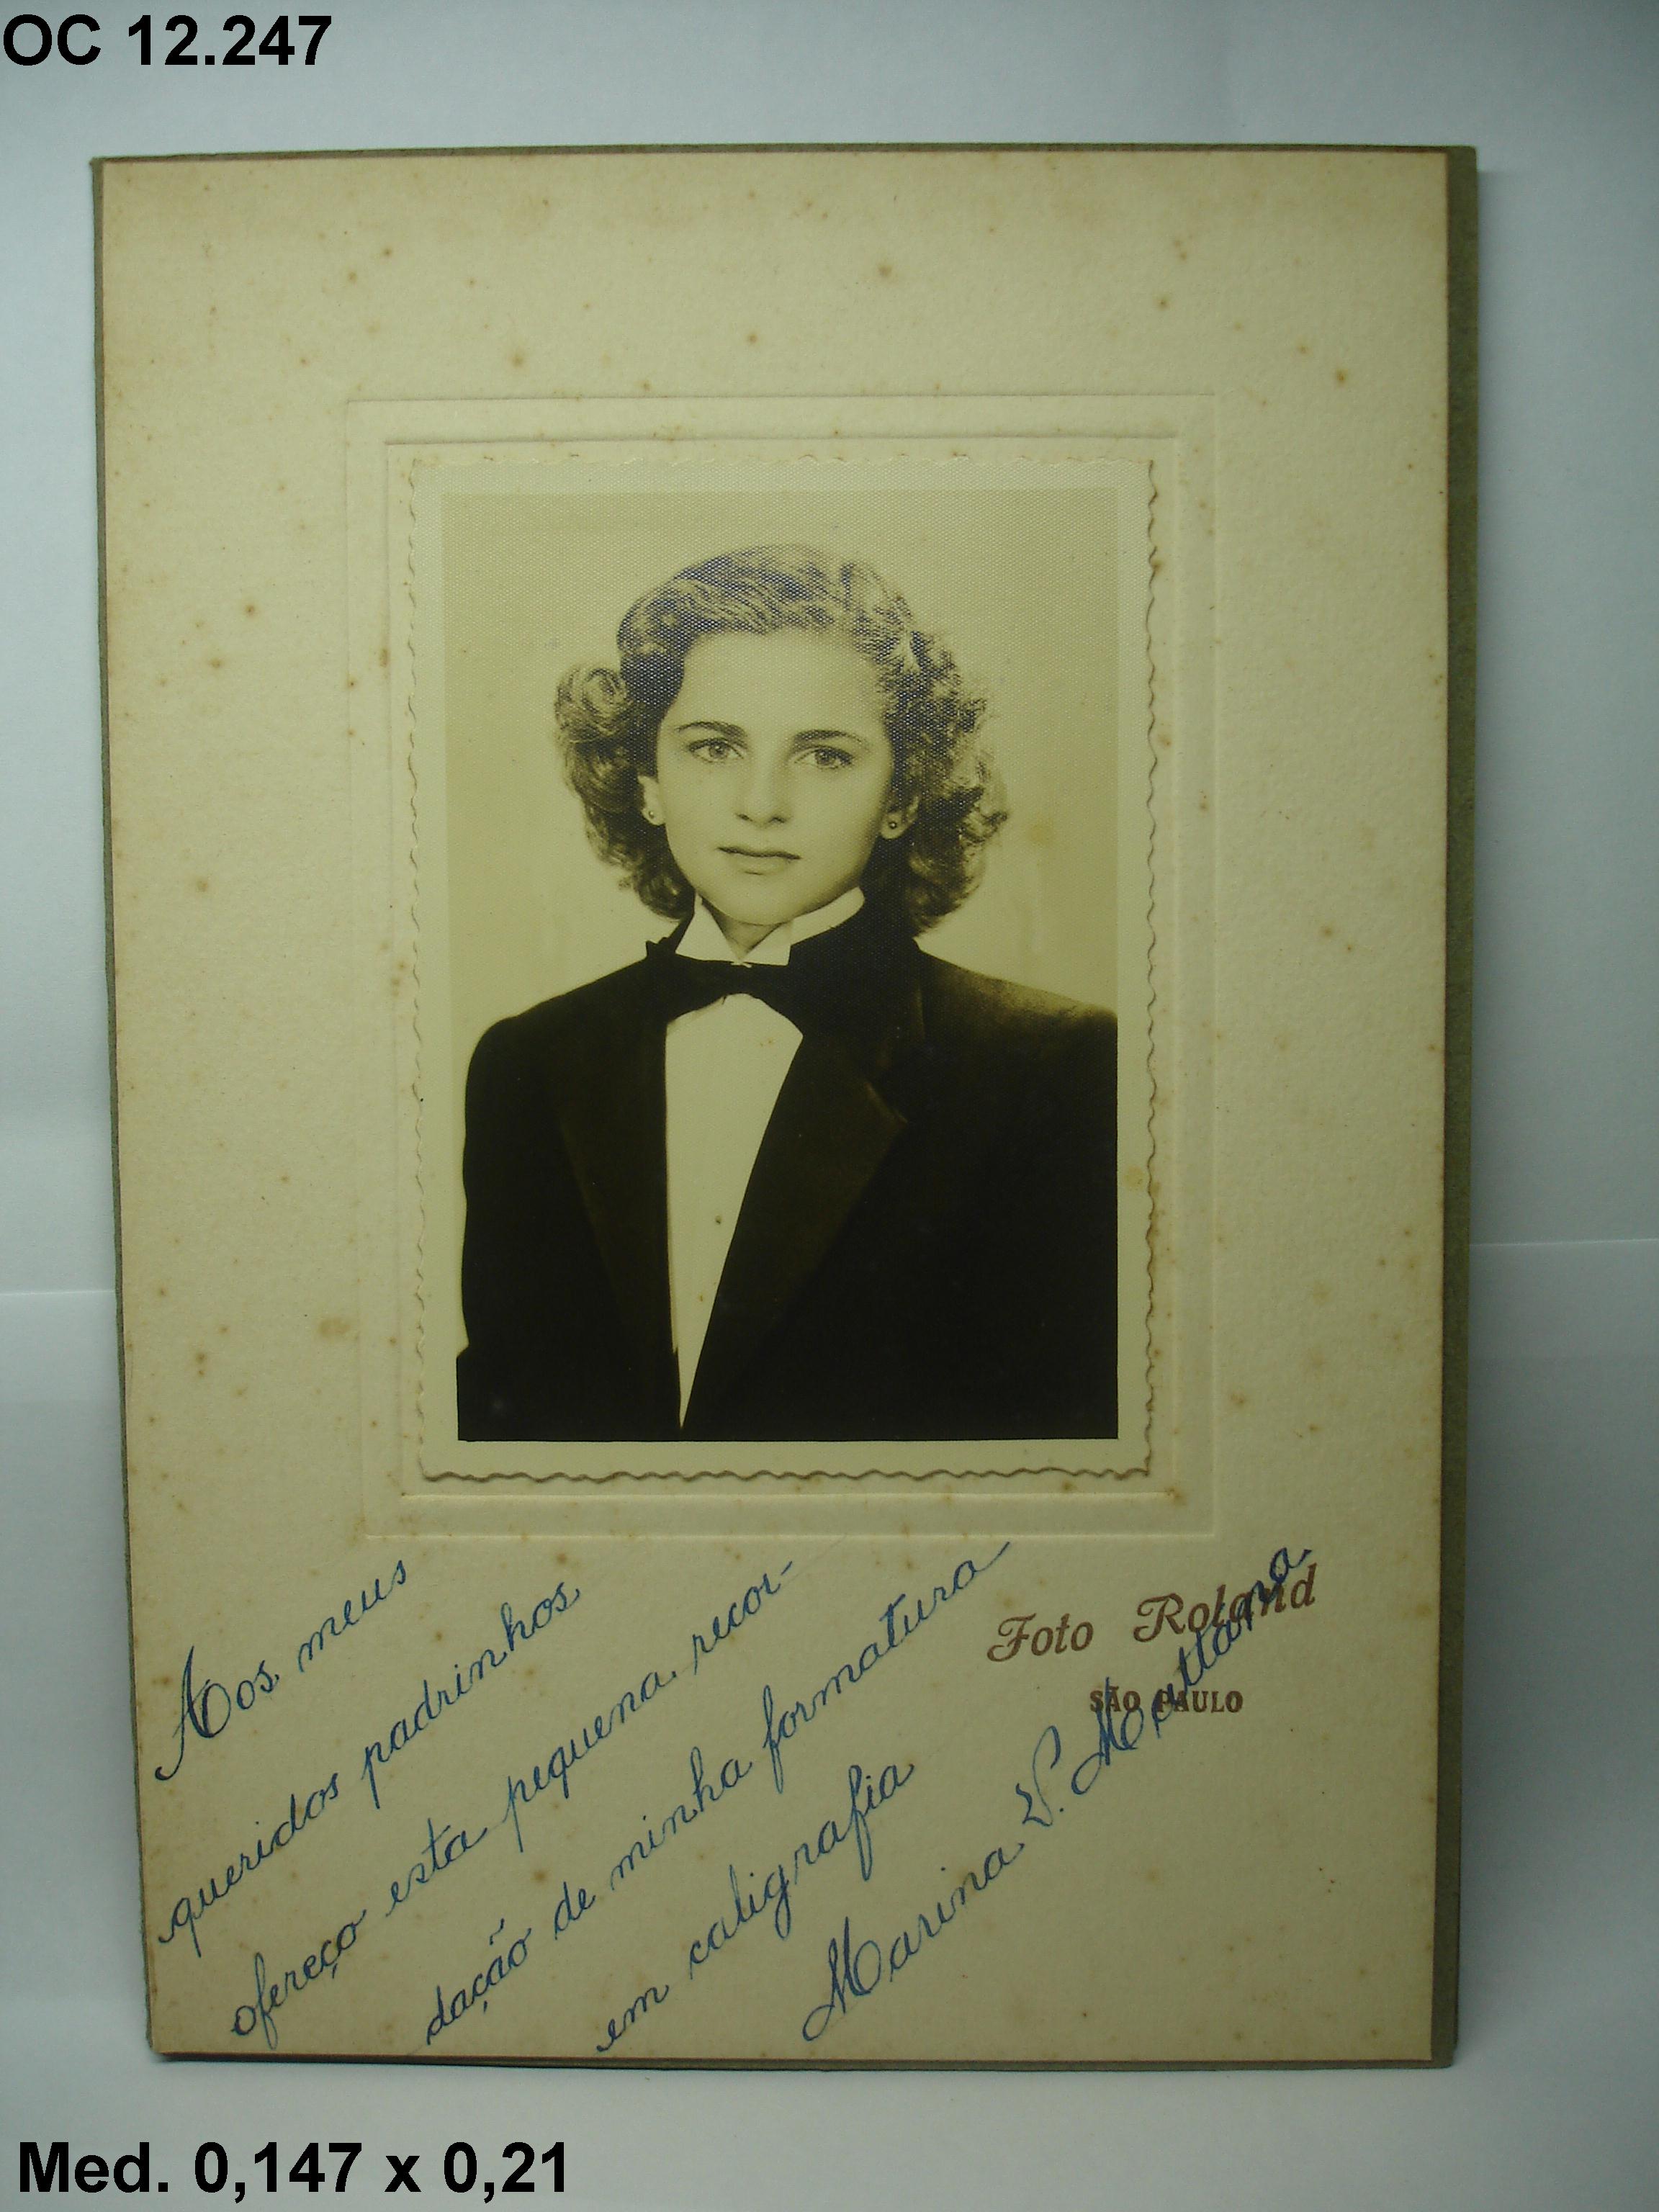 OC 12.247
Aos meus
queridos padrinhos
ofereço esta pequena recor-
dação de minha formatura
em caligrafia
Marina V. Mattana
Foto Roland
SÃO PAULO
Med. 0,147 x 0,21